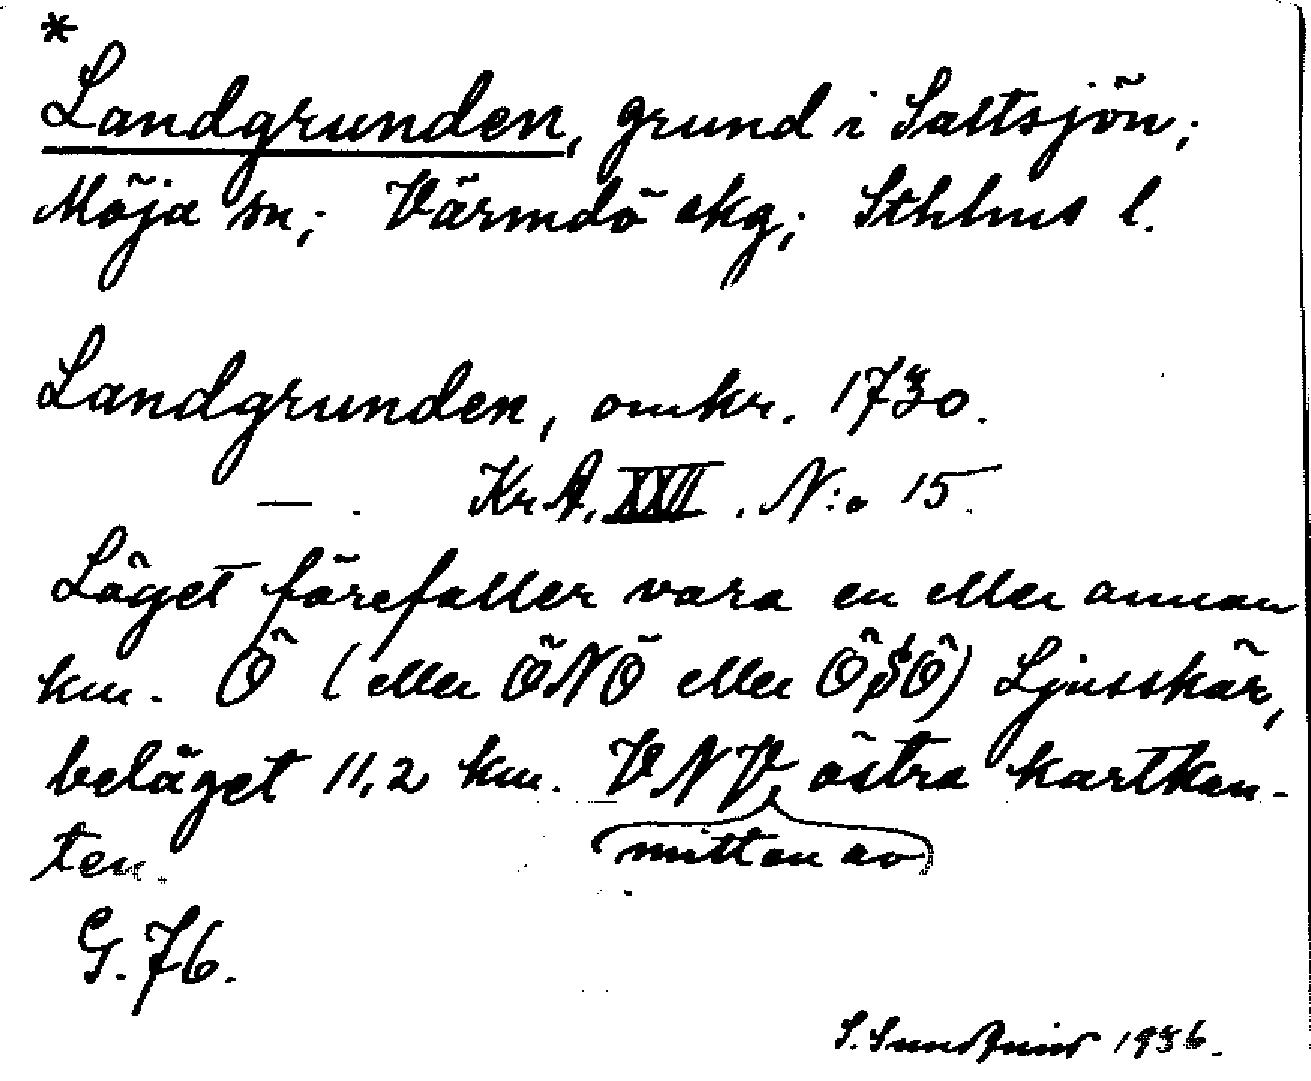 *
Landgrunden, grund i Saltsjön;
Möja sn; Värmdö skg; Sthlms l.
Landgrunden, omkr. 1730.
— . KrA, XXII. N:o 15.
Läget förefaller vara en eller annan
km. Ö (eller ÖNÖ eller ÖSÖ) Ljusskär,
beläget 11,2 km. VNV, östra kartkan-
ten.
mitten av
G. 76.
S. 1936.